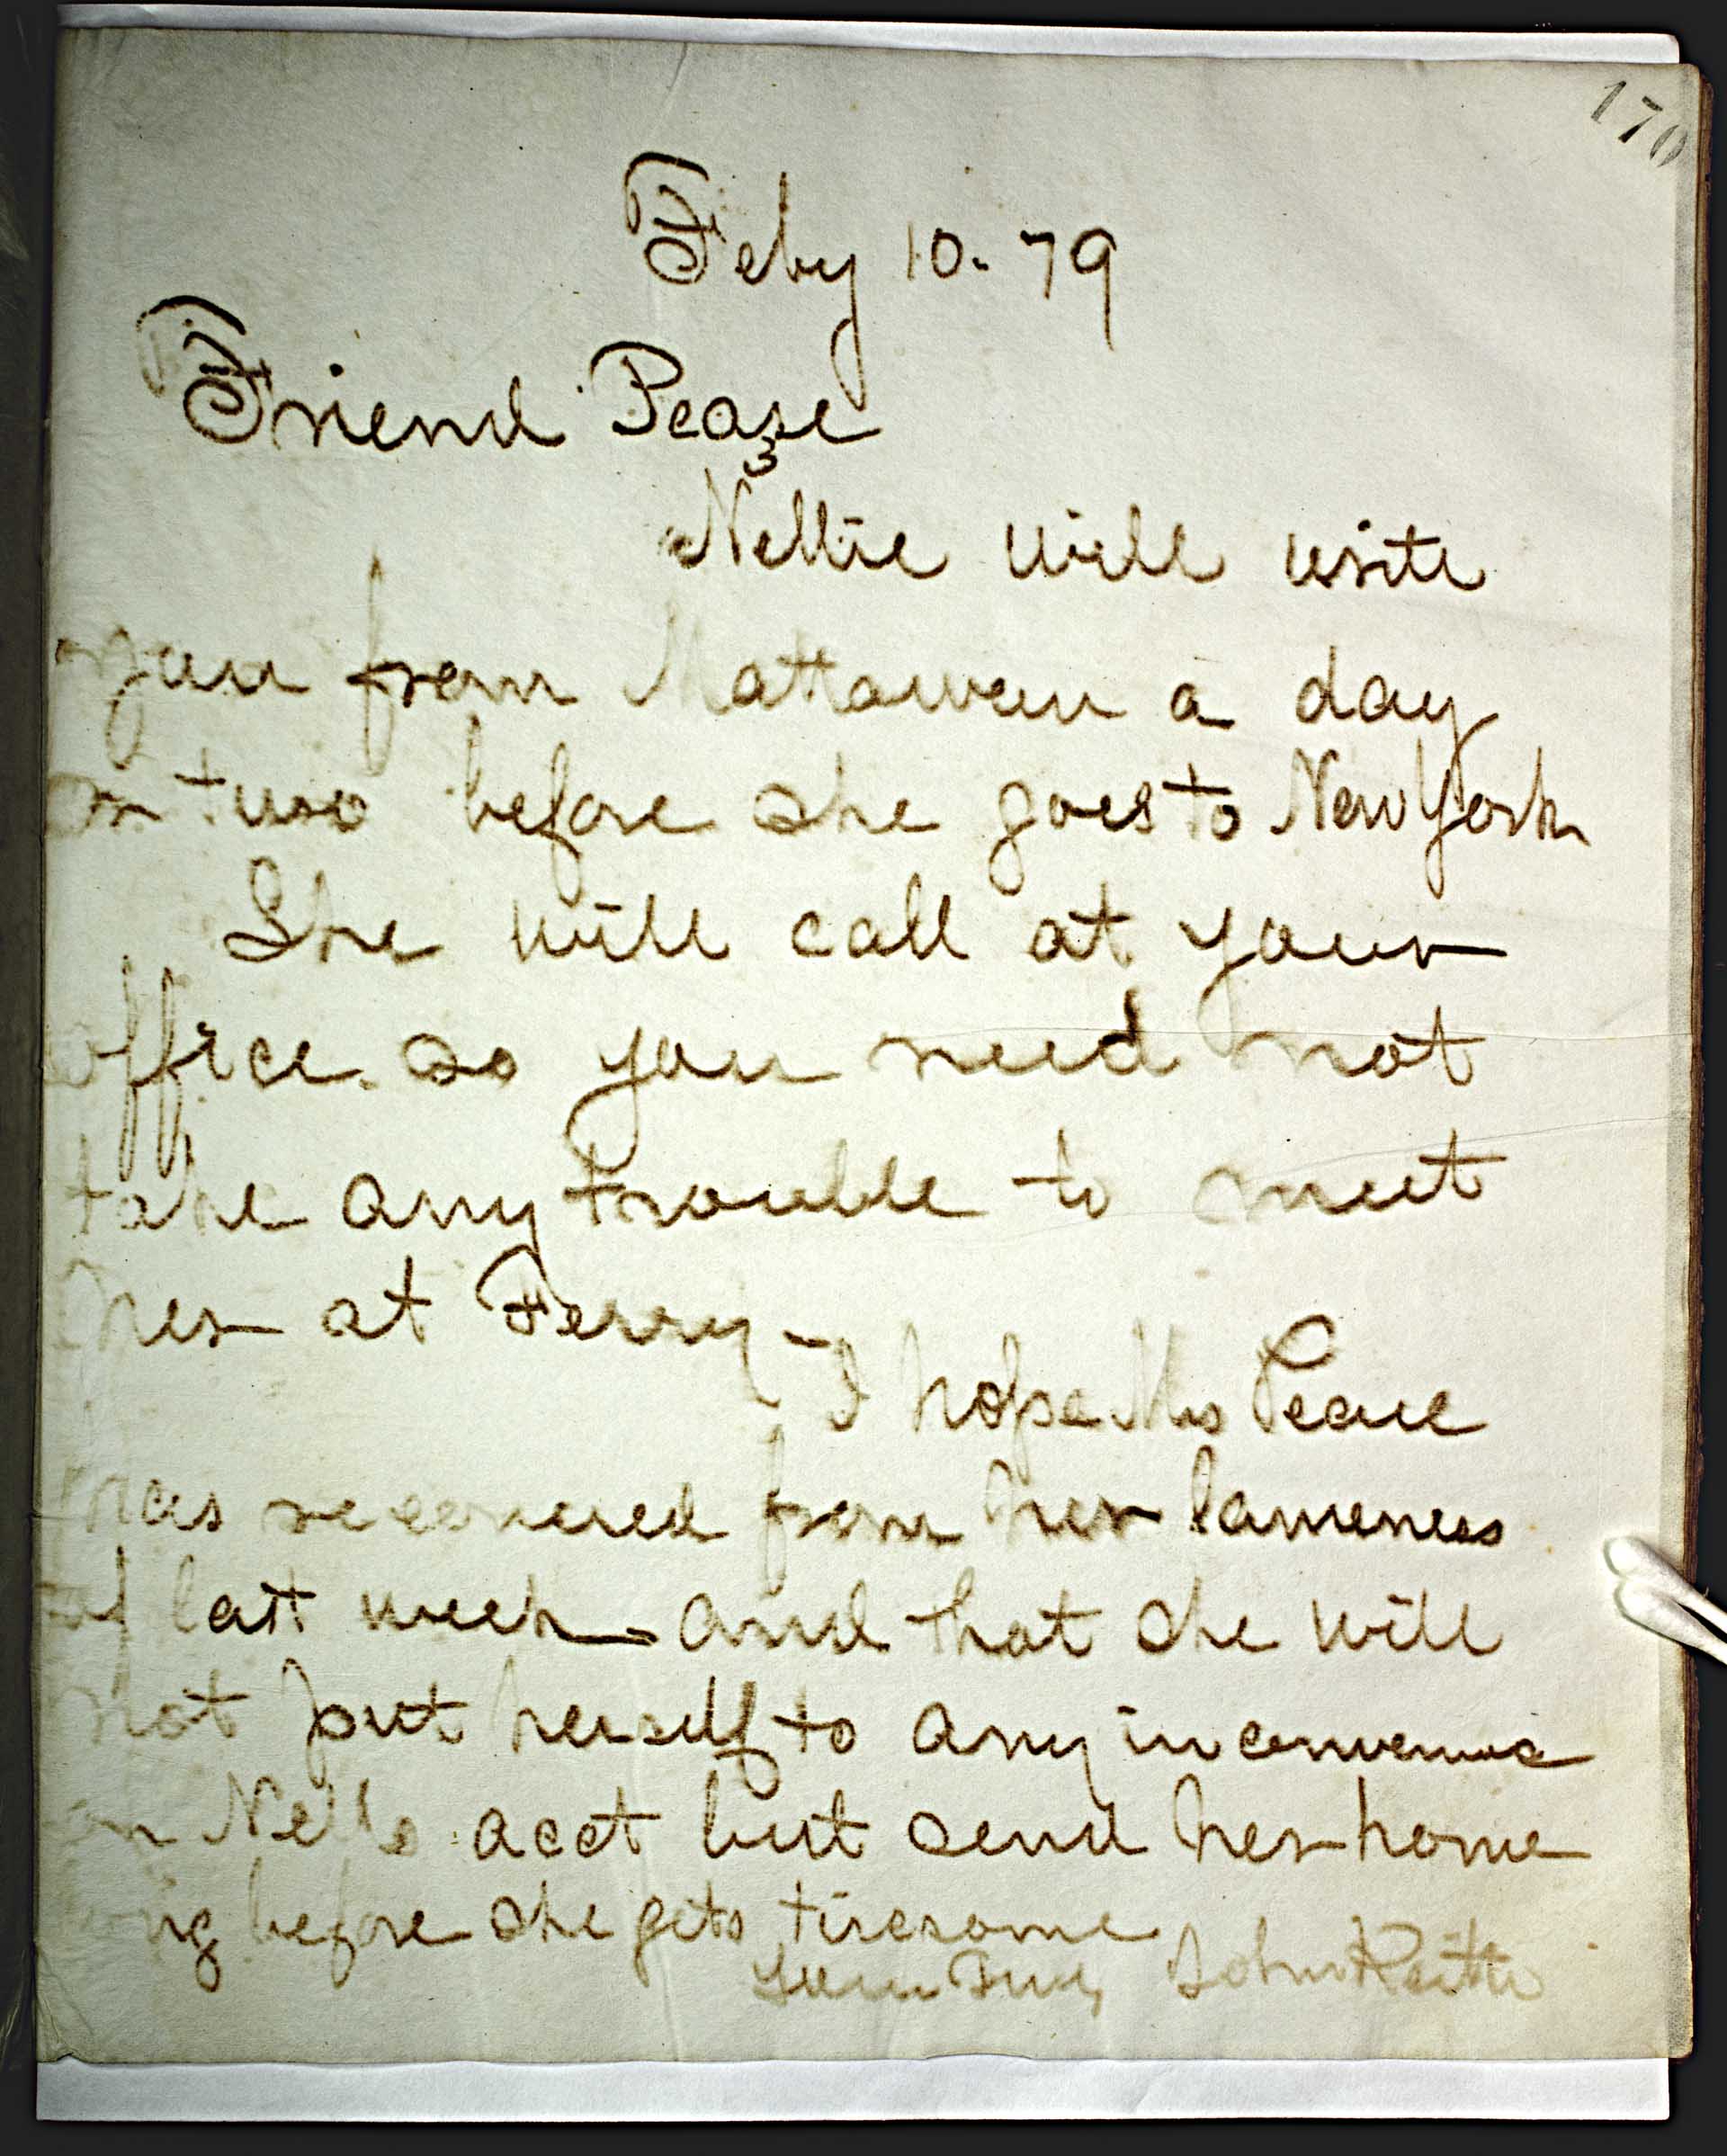 170
Feby 10. 79
Friend Pease
Nellie will write
you from Mattawan a day
or two before she goes to New York
She will call at your
office. so you need not
take any trouble to meet
her at Ferry -
I hope Mrs Pease
has recovered from her lameness
of last week. and that she will
not put herself to any inconvenience
on Nells acct but send her home
before she gets tiresome
Yours Truly John Keith